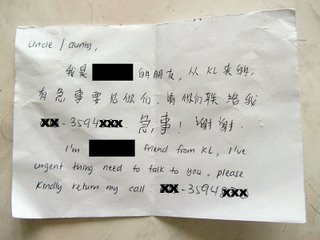 uncle / aunty,
我是 的朋友, 从 KL 来的,
有急事要见你们. 请你们联给我
XX-3594XXX 急事! 谢谢.
I'm friend from KL, I've
urgent thing need to talk to you, please
kindly return my call XX-3594XXX